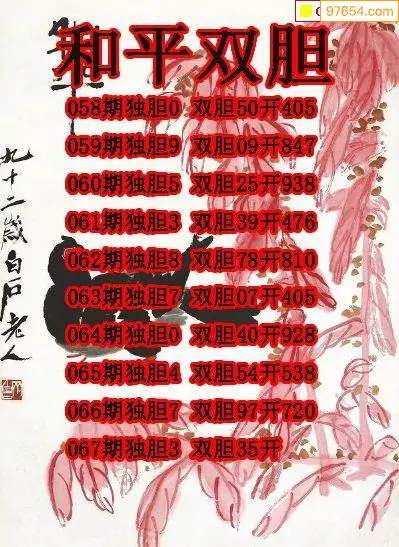 97654.com
和平双胆
058期独胆0 双胆50开405
059期独胆9 双胆09开847
060期独胆5 双胆25开938
061期独胆3 双胆39开476
062期独胆8 双胆78开810
063期独胆7 双胆07开405
064期独胆0 双胆40开928
065期独胆4 双胆54开538
066期独胆7 双胆97开720
067期独胆3 双胆35开
九十二岁白石老人